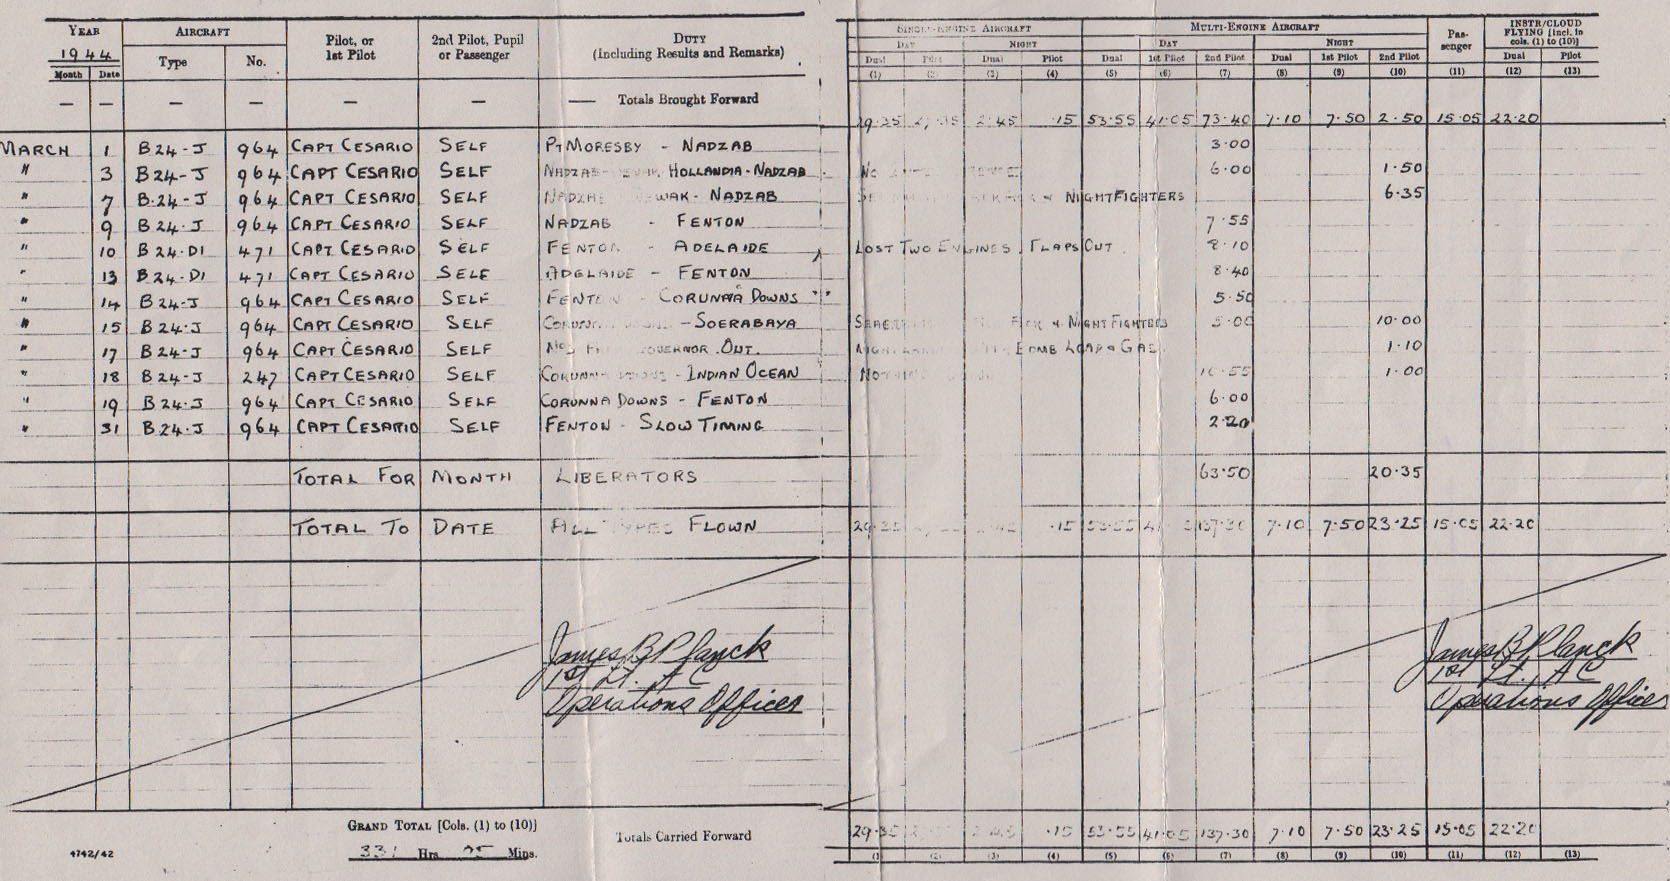 YEAR AIRCRAFT Pilot, or 1st Pilot 2nd Pilot, Pupil or Passenger DUTY (Including Results and Remarks) SINGLE-ENGINE AIRCRAFT MULTI-ENGINE AIRCRAFT Pas-senger INSTR/CLOUD FLYING [Incl. in cols. (1) to (10)]
1944 Type No. DAY NIGHT DAY NIGHT
Month Date Dual Pilot Dual Pilot Dual 1st Pilot 2nd Pilot Dual 1st Pilot 2nd Pilot Dual Pilot
(1) (2) (3) (4) (5) (6) (7) (8) (9) (10) (11) (12) (13)
— — — — — — — Totals Brought Forward
29·35 2·45 ·15 53·55 41·05 73·40 7·10 7·50 2·50 15·05 22·20
MARCH 1 B24-J 964 CAPT CESARIO SELF PT MORESBY - NADZAB 3·00
" 3 B24-J 964 CAPT CESARIO SELF NADZAB HOLLANDIA - NADZAB 6·00 1·50
" 7 B·24-J 964 CAPT CESARIO SELF WAK - NADZAB NIGHTFIGHTERS 6·35
" 9 B24·J 964 CAPT CESARIO SELF NADZAB - FENTON 7·55
" 10 B24·D1 471 CAPT CESARIO SELF FENTON - ADELAIDE LOST TWO ENGINES, FLAPS OUT 8·10
" 13 B24-D1 471 CAPT CESARIO SELF ADELAIDE - FENTON 8·40
" 14 B24-J 964 CAPT CESARIO SELF FENTON - CORUNNA DOWNS 5·50
" 15 B24·J 964 CAPT CESARIO SELF - SOERABAYA NIGHT FIGHTERS 5·00 10·00
" 17 B24-J 964 CAPT CESARIO SELF GOVERNOR OUT. BOMB LOAD & GAS 1·10
" 18 B24-J 247 CAPT CESARIO SELF CORUNNA DOWNS - INDIAN OCEAN 10·55 1·00
" 19 B24·J 964 CAPT CESARIO SELF CORUNNA DOWNS - FENTON 6·00
" 31 B24·J 964 CAPT CESARIO SELF FENTON - SLOW TIMING 2·20
TOTAL FOR MONTH LIBERATORS 63·50 20·35
TOTAL TO DATE ALL TYPES FLOWN 29·35 ·15 53·55 137·30 7·10 7·50 23·25 15·05 22·20
James B Planck James B Planck
1st Lt. AC 1st Lt. AC
Operations Officer Operations Officer
GRAND TOTAL [Cols. (1) to (10)] Totals Carried Forward 29·35 2·45 ·15 53·55 41·05 137·30 7·10 7·50 23·25 15·05 22·20
4742/42 331 Hrs. 25 Mins. (1) (2) (3) (4) (5) (6) (7) (8) (9) (10) (11) (12) (13)